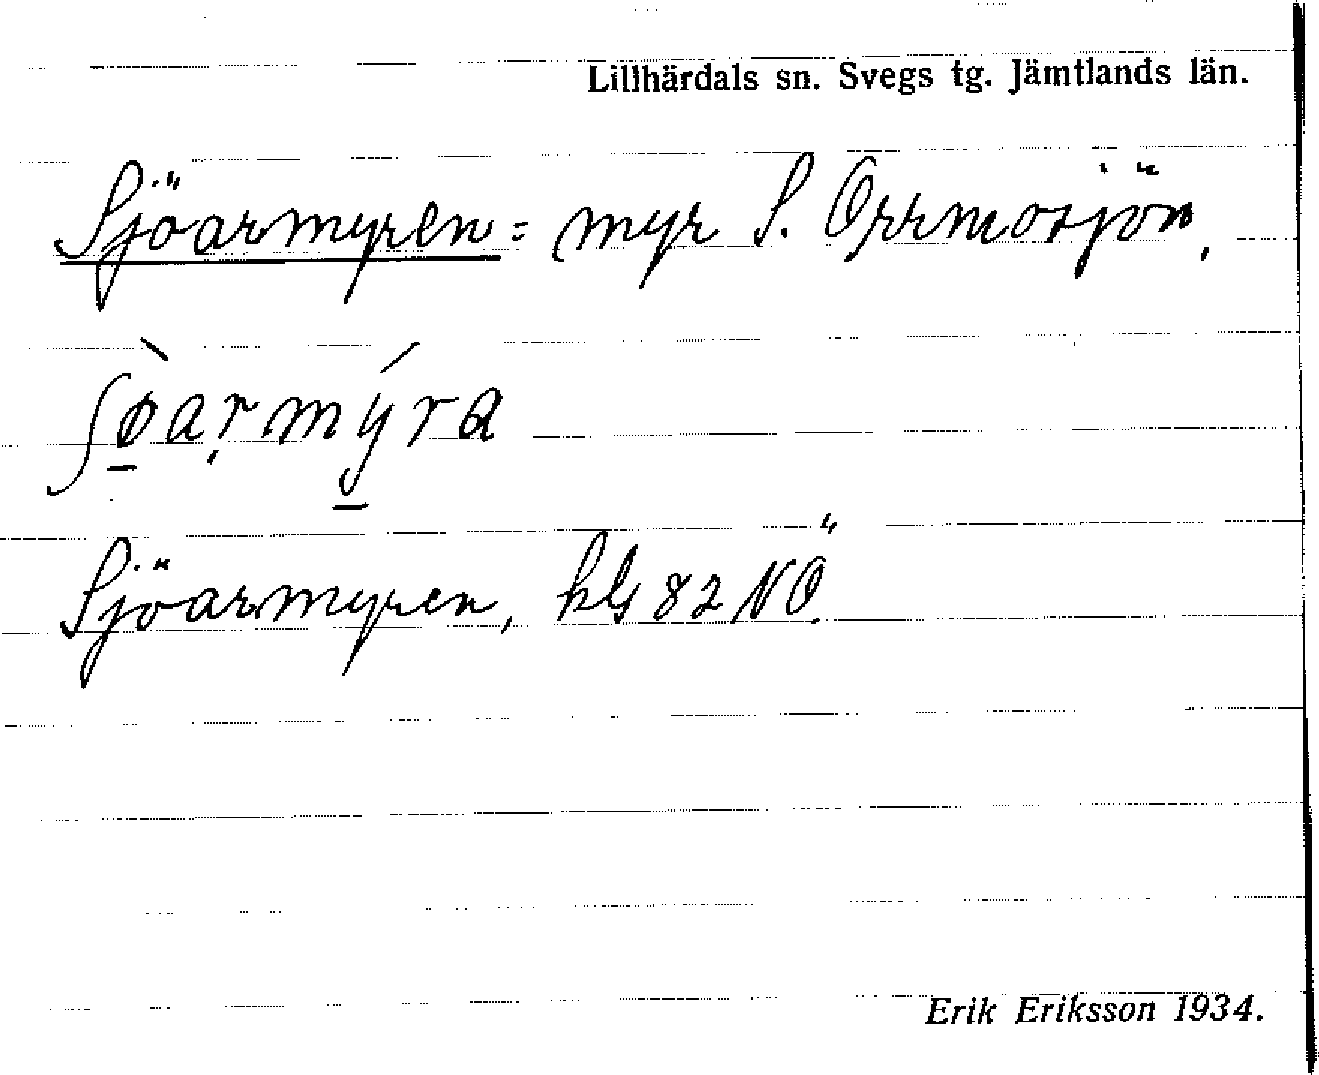 Lillhärdals sn. Svegs tg. Jämtlands län.
Sjöarmyren = myr S. Orrmosjön,
ʃø̱̀aṛmý̱ra
Sjöarmyren, kbl 82 NÖ.
Erik Eriksson 1934.